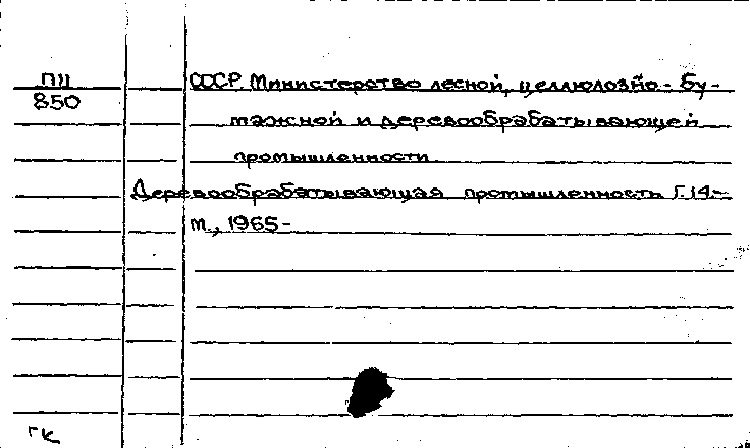 П11
850
СССР. Министерство лесной, целлюлозно-бу-
мажной и деревообрабатывающей
промышленности.
Деревообрабатывающая промышленность Г.14-
м., 1965-
ГК